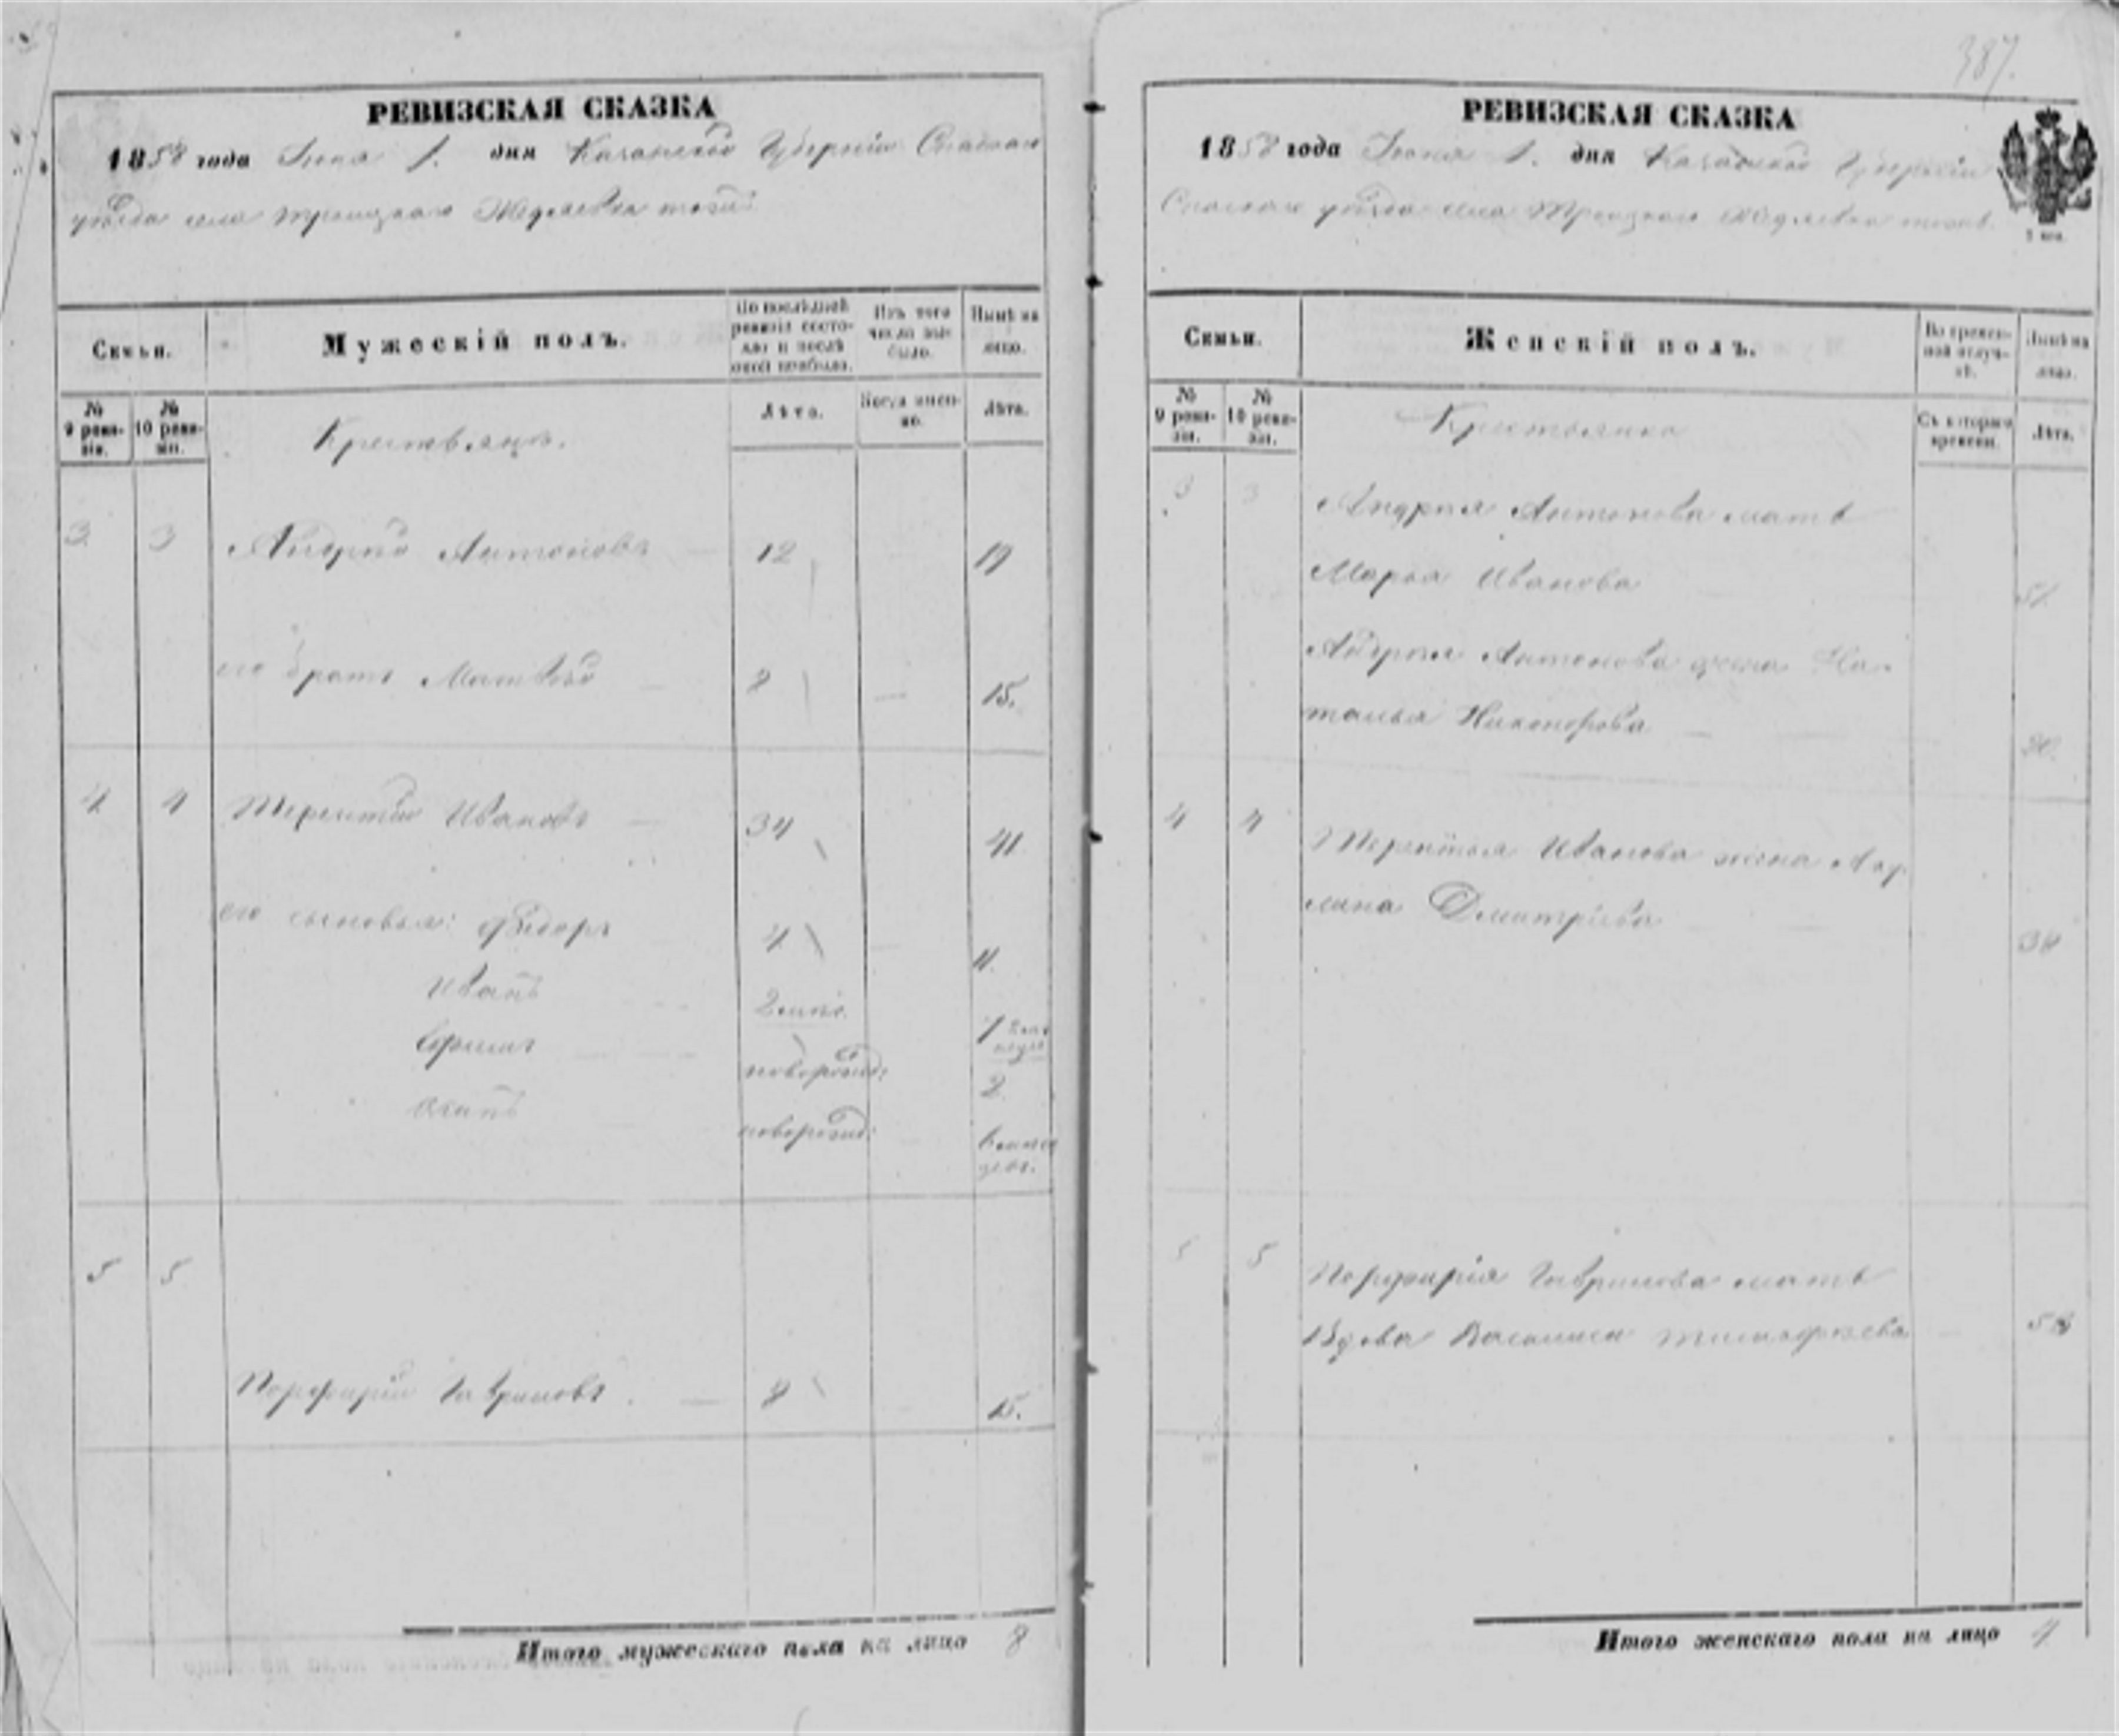 РЕВИЗСКАЯ СКАЗКА
1858 года Іюня 1. дня Казанской Губерніи Спаскаго
уѣзда села Троицкаго тожъ
Семьи.
Мужескій полъ.
По послѣдней ревизіи состояло и послѣ оной прибыло.
Изъ того числа выбыло.
Нынѣ на лицо.
№ 9 ревизіи.
№ 10 ревизіи.
Крестьянъ.
Лѣта.
Когда именно.
Лѣта.
3 3 Андрей Антоновъ 12 19
его братъ Матвѣй 8 15.
4 4 Терентій Ивановъ 34 41
его сыновья: Ѳедоръ 4 11.
Иванъ
Ефимъ новорожд: 2
Осипъ новорожд:
5 5
Порфирій Гавриловъ. 8 15.
Итого мужескаго пола на лицо 8
387.
РЕВИЗСКАЯ СКАЗКА
1858 года Іюня 1. дня Казанской Губерніи
Спаскаго уѣзда села Троицкаго тожъ.
Семьи.
Женскій полъ.
Во временной отлучкѣ.
Нынѣ на лицо.
№ 9 ревизіи.
№ 10 ревизіи.
Съ котораго времени.
Лѣта.
3 3 Андрея Антонова мать
Марья Иванова 51.
Андрея Антонова жена На-
талья Никонорова 20.
4 4 Терентья Иванова жена
Дмитріева
5 5 Порфирія Гаврилова мать
Вдова Василиса Тимофѣева 58
Итого женскаго пола на лицо 4